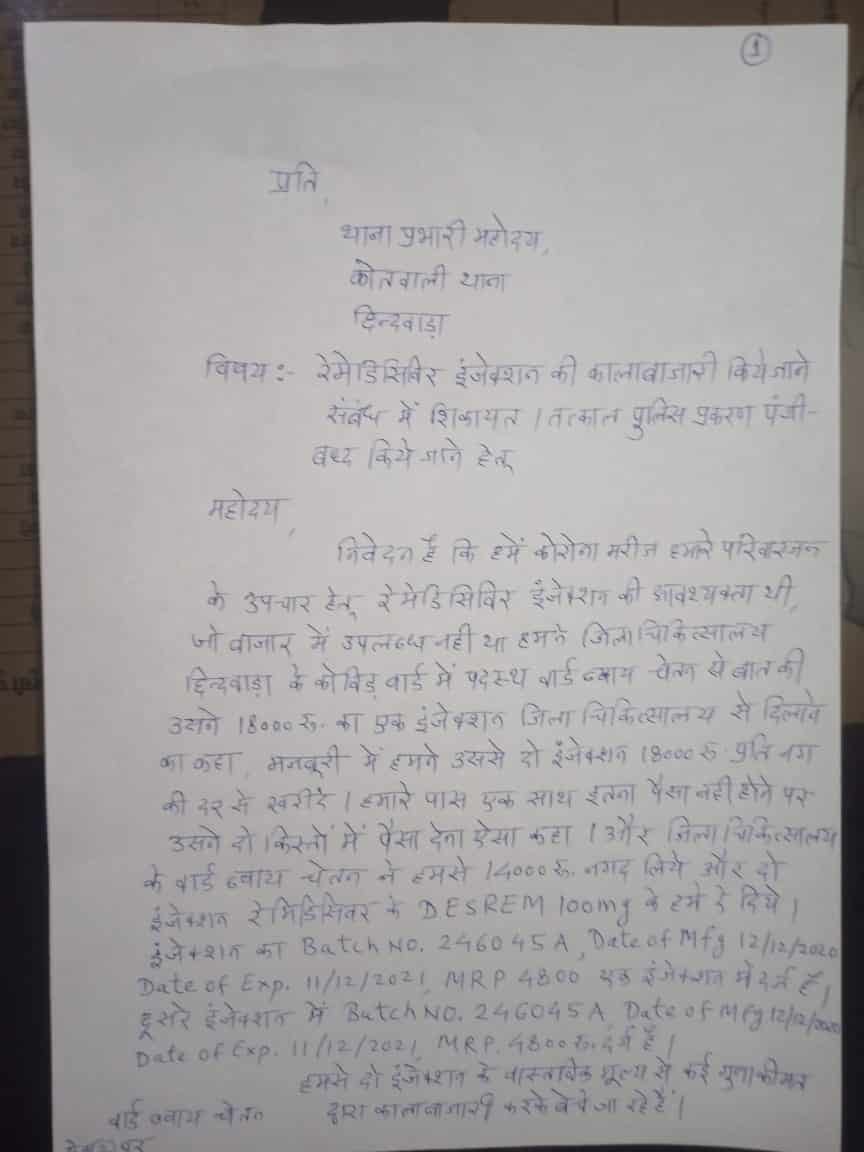 1
प्रति,
थाना प्रभारी महोदय,
कोतवाली थाना
छिन्दवाड़ा
विषय :- रेमेडिसिविर इंजेक्शन की कालाबाजारी किये जाने
संबंध में शिकायत । तत्काल पुलिस प्रकरण पंजी-
बध्द किये जाने हेतू
महोदय,
निवेदन है कि हमें कोरोना मरीज हमारे परिवारजन
के उपचार हेतू रेमेडिसिविर इंजेक्शन की आवश्यक्ता थी,
जो बाजार में उपलब्ध नही था हमने जिला चिकित्सालय
छिन्दवाड़ा के कोविड़ वार्ड में पदस्थ वार्ड ब्वाय चेतन से बात की
उसने 18000 रू. का एक इंजेक्शन जिला चिकित्सालय से दिलाने
का कहा, मजबूरी में हमने उससे दो इंजेक्शन 18000 रू प्रति नग
की दर से खरीदे । हमारे पास एक साथ इतना पैसा नही होने पर
उसने दो किस्तों में पैसा देना ऐसा कहा । और जिला चिकित्सालय
के वार्ड ब्वाय चेतन ने हमसे 14000 रू. नगद लिये और दो
इंजेक्शन रेमिडिसिवर के DESREM 100mg के हमे दे दिये ।
इंजेक्शन का Batch NO. 246045A, Date of Mfg 12/12/2020
Date of Exp. 11/12/2021, MRP 4800 एक इंजेक्शन में दर्ज है,
दूसरे इंजेक्शन में Batch NO. 246045A Date of Mfg 12/12/2020
Date of Exp. 11/12/2021, MRP. 4800 रू. दर्ज है ।
हमसे दो इंजेक्शन के वास्तविक मूल्य से कई गुना कीमत
वार्ड ब्वाय चेतन द्वारा कालाबाजारी करके बेचे जा रहे हैं ।